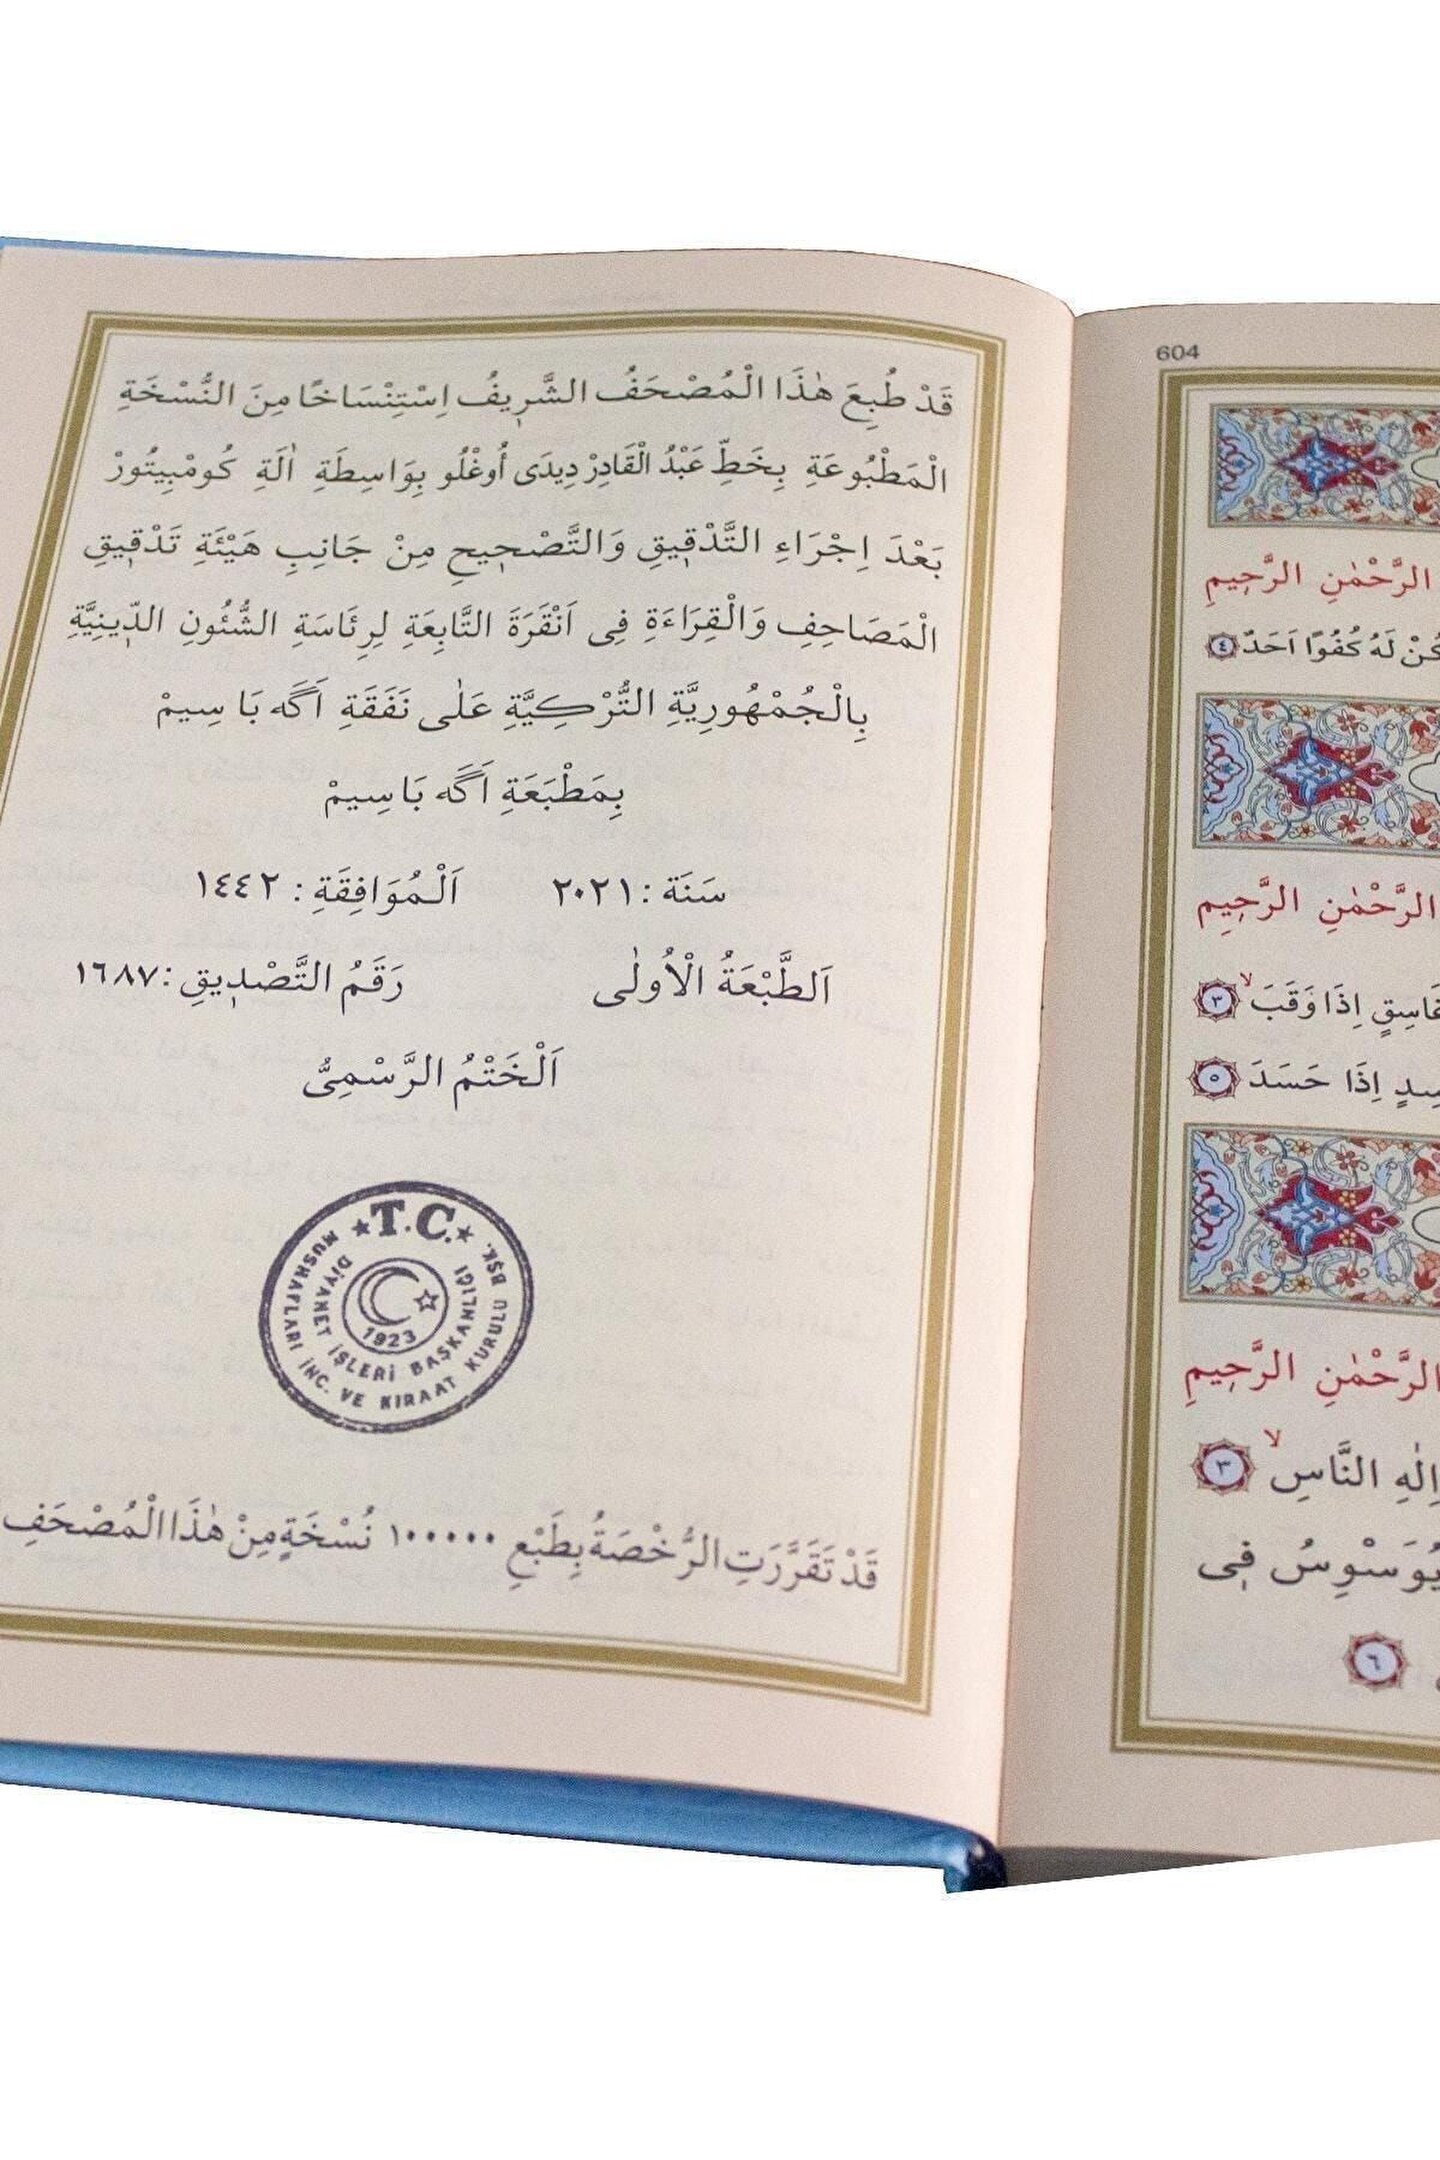 604
الرَّحْمٰنِ الرَّحِيمِ
لَهُ كُفُوًا اَحَدٌ ٤
الرَّحْمٰنِ الرَّحِيمِ
غَاسِقٍ اِذَا وَقَبَ ۙ ٣
اِذَا حَسَدَ ٥
الرَّحْمٰنِ الرَّحِيمِ
اِلٰهِ النَّاسِ ۙ ٣
يُوَسْوِسُ فِى
٦
قَدْ طُبِعَ هٰذَا الْمُصْحَفُ الشَّرِيفُ اِسْتِنْسَاخًا مِنَ النُّسْخَةِ
الْمَطْبُوعَةِ بِخَطِّ عَبْدُ الْقَادِرْ دِيدَى أُوغْلُو بِوَاسِطَةِ اٰلَةِ كُومْبِيتُورْ
بَعْدَ اِجْرَاءِ التَّدْقِيقِ وَالتَّصْحِيحِ مِنْ جَانِبِ هَيْئَةِ تَدْقِيقِ
الْمَصَاحِفِ وَالْقِرَاءَةِ فِى اَنْقَرَةَ التَّابِعَةِ لِرِئَاسَةِ الشُّئُونِ الدِّينِيَّةِ
بِالْجُمْهُورِيَّةِ التُّرْكِيَّةِ عَلٰى نَفَقَةِ اَگَه بَاسِيمْ
بِمَطْبَعَةِ اَگَه بَاسِيمْ
سَنَة : ٢٠٢١ اَلْمُوَافِقَةِ : ١٤٤٢
اَلطَّبْعَةُ الْاُولٰى رَقَمُ التَّصْدِيقِ : ١٦٨٧
اَلْخَتْمُ الرَّسْمِىُّ
T.C.
MUSHAFLARI İNC. VE KIRAAT KURULU BŞK.
DİYANET İŞLERİ BAŞKANLIĞI
1923
قَدْ تَقَرَّرَتِ الرُّخْصَةُ بِطَبْعِ ١٠٠٠٠٠ نُسْخَةٍ مِنْ هٰذَا الْمُصْحَفِ